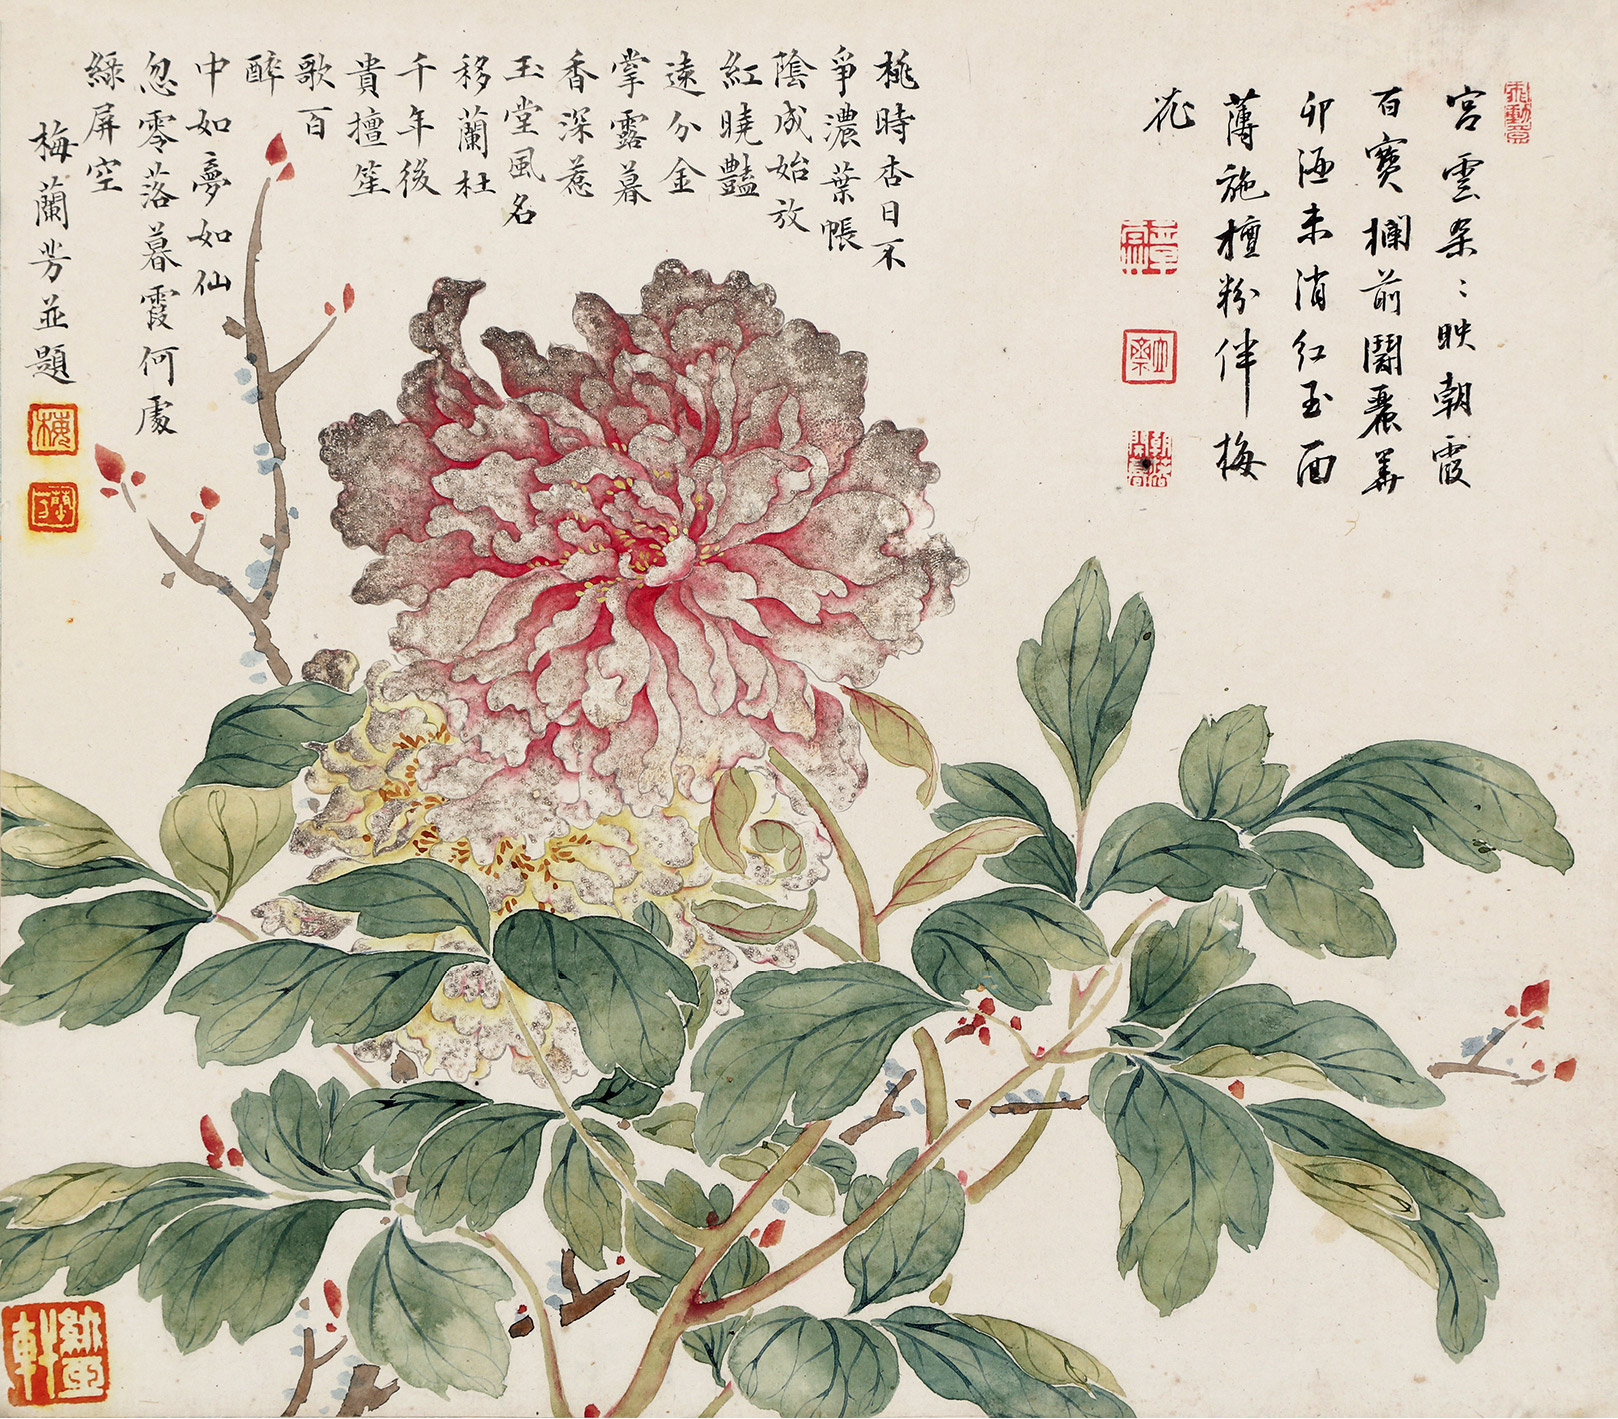 宮雲朵〻映朝霞
百寶欄前鬭麗華
卯酒未消紅玉面
薄施檀粉伴梅
花
桃時杏日不
爭濃葉帳
蔭成始放
紅曉豔
遠分金
掌露暮
香深惹
玉堂風名
移蘭杜
千年後
貴擅笙
歌百
醉
中如夢如仙
忽零落暮霞何處
綠屏空
梅蘭芳並題
梅
蘭芳
綴玉軒